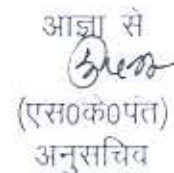 आज्ञा से
(एस0के0पंत)
अनुसचिव